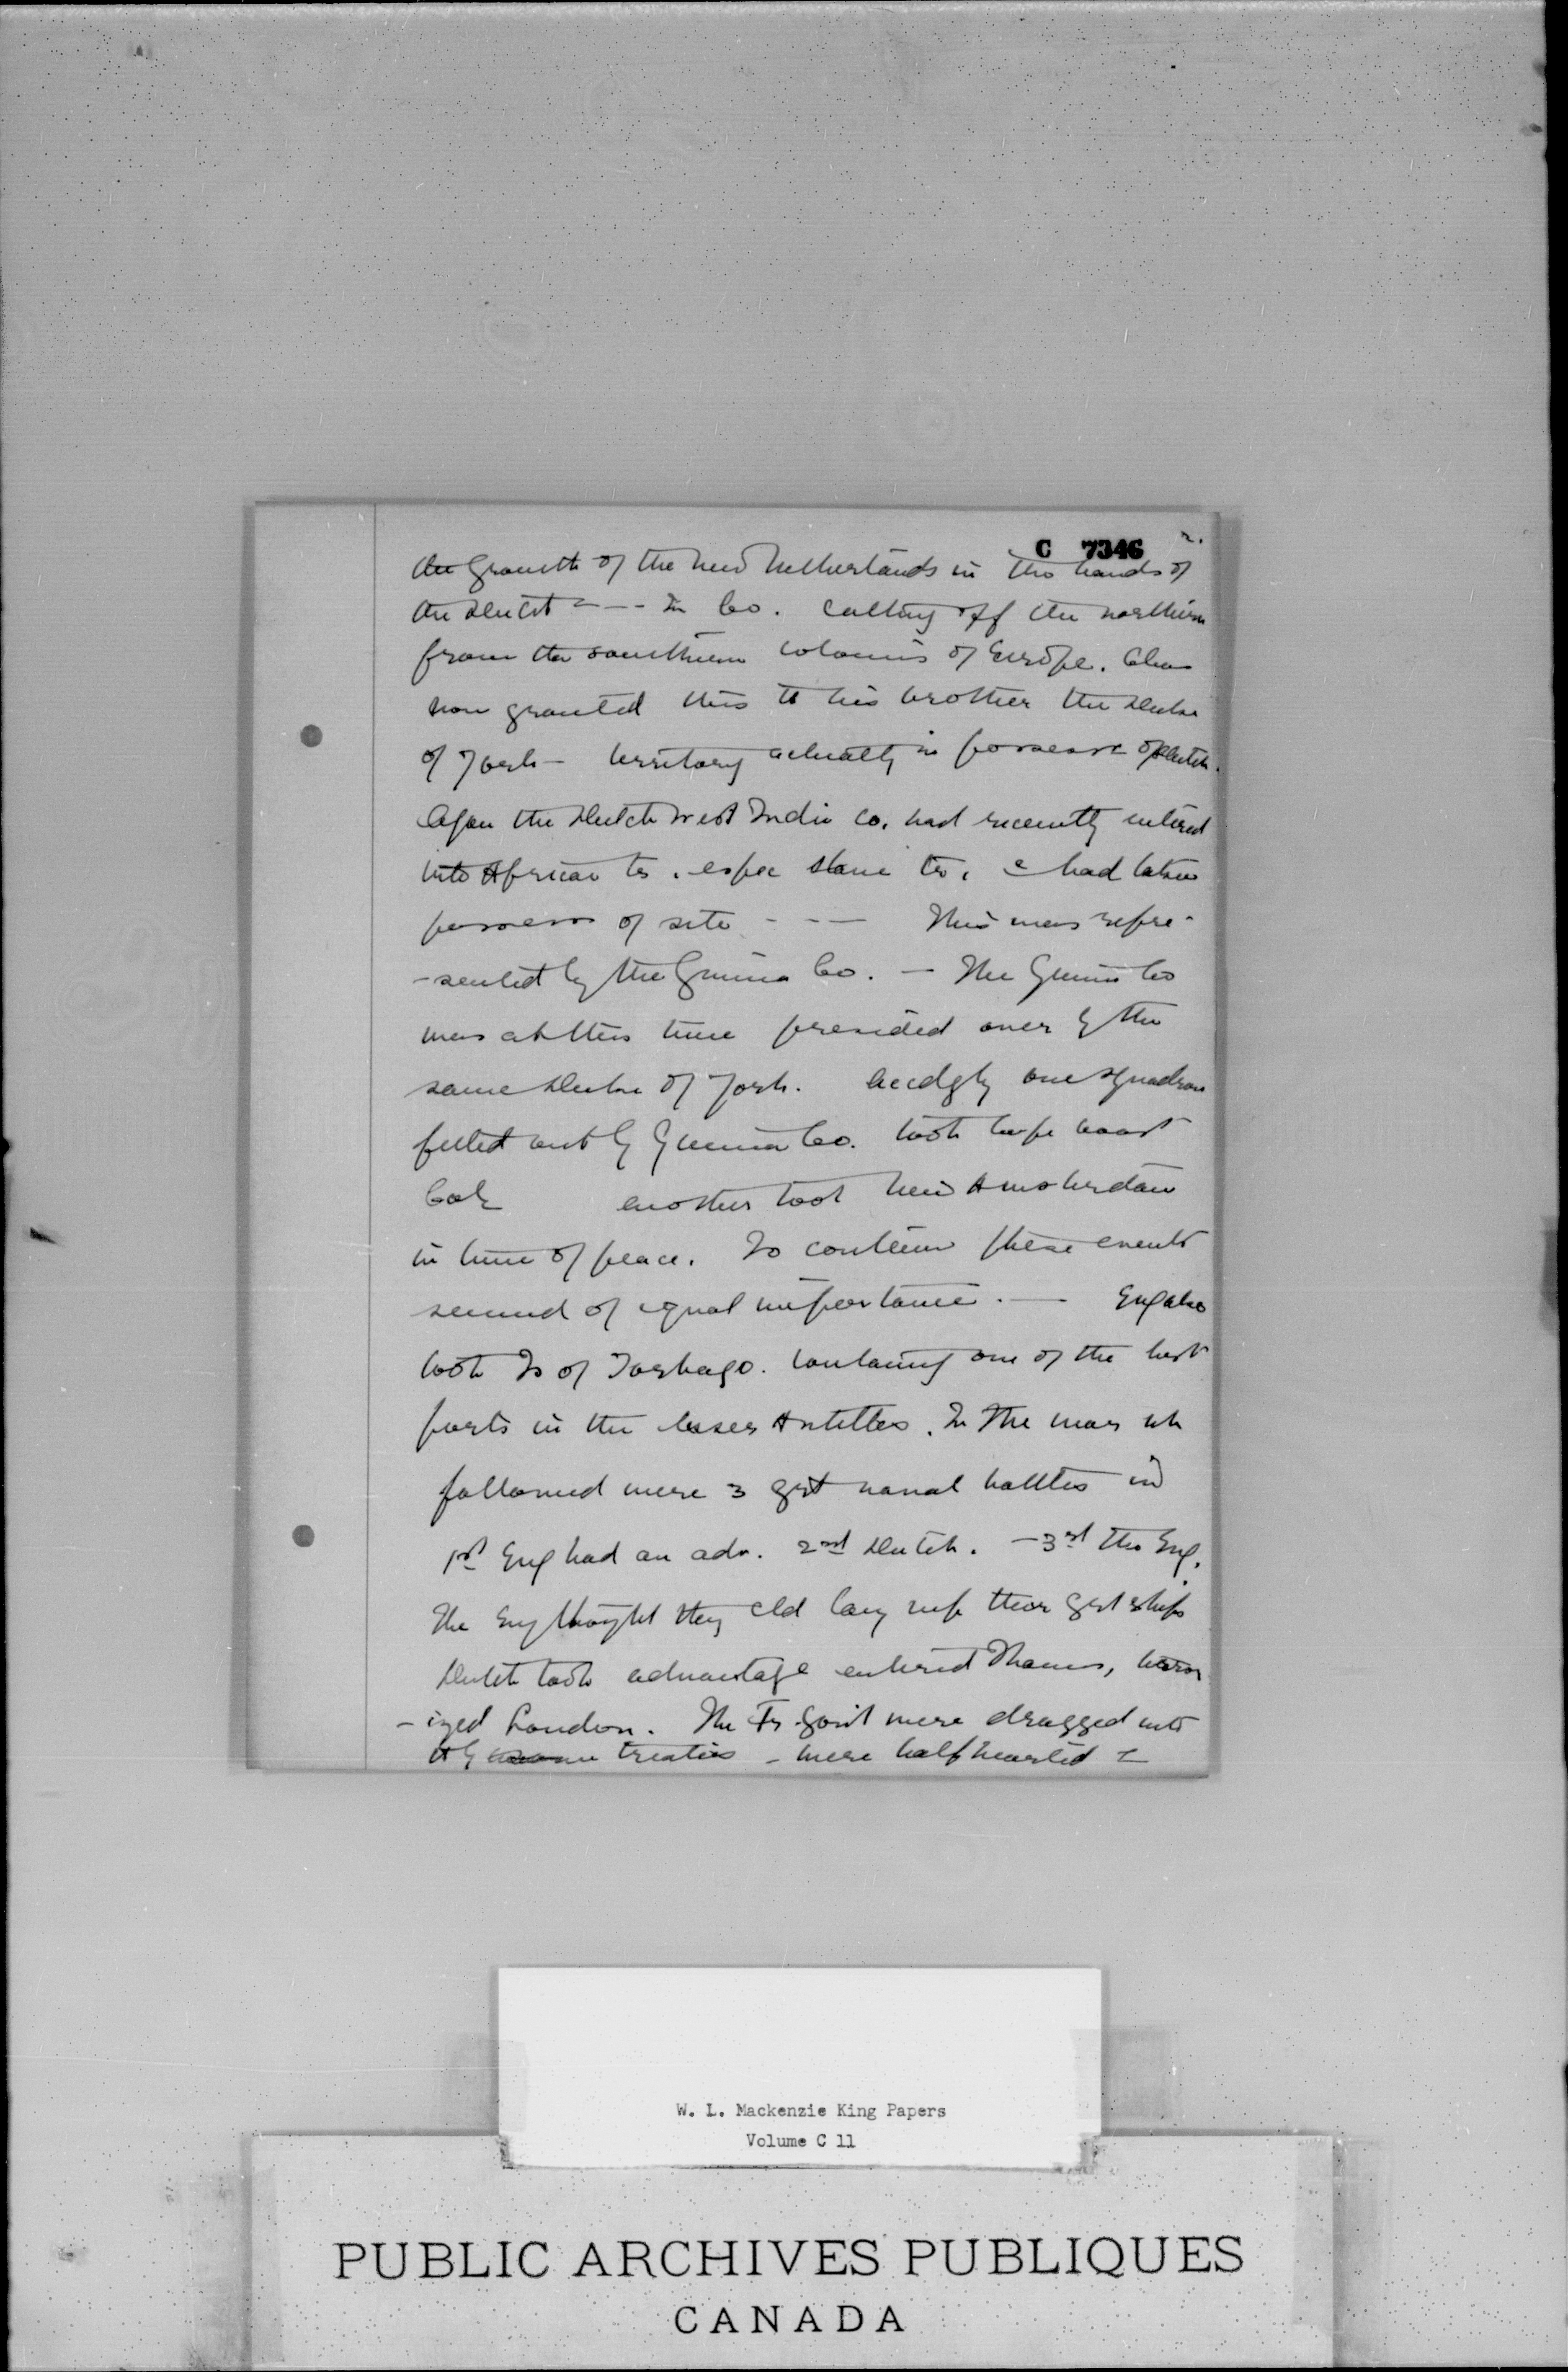 C 7346 2.
the growth of the New Netherlands in the hands of
the Dutch - - - In Co. cutting off the northern
from the southern colonies of Europe. Chas
now granted this to his brother the Duke
of York - territory actually in possess of Dutch.
Again the Dutch West India Co. had recently entered
into African tr. espec slave tr. & had taken
possess of site - - - This was repre-
-sented by the Guinea Co. - The Guinea Co
was at this time presided over by the
same Duke of York. Accdgly one squadron
fitted out by Guinea Co. took Cape Coast
another took New Amsterdam
in time of peace. To contem these events
seemed of equal importance. - Eng also
took Is of Tobago. containing one of the best
ports in the lesser Antilles. In the war wh
followed were 3 grt naval battles in
1st Eng had an adv. 2nd Dutch. - 3rd the Eng.
The Eng thought they cld lay up their grt ships
Dutch took advantage entered Thames, terror
-ized London. The Fr. Gov't were dragged into
it by treaties - were half hearted &
W. L. Mackenzie King Papers
Volume C 11
PUBLIC ARCHIVES PUBLIQUES
CANADA